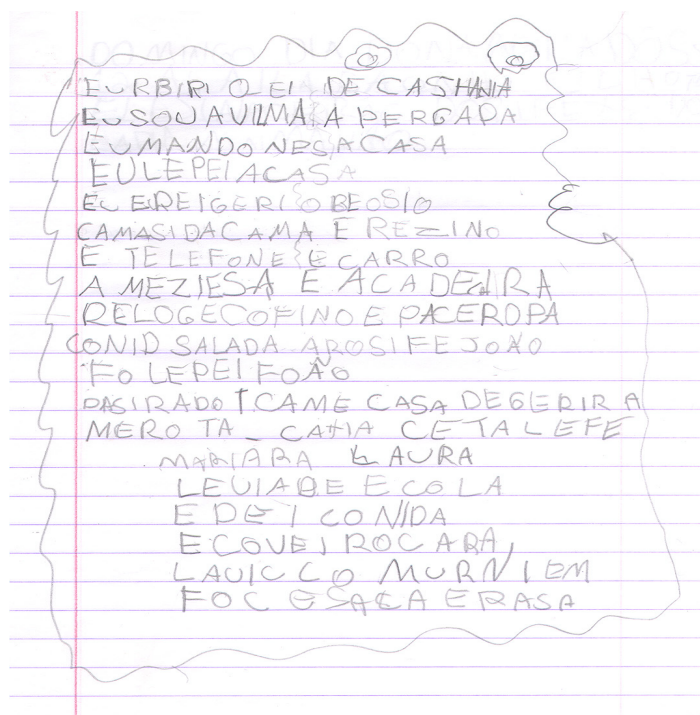 EU RBIRI O EI DE CASHNIA
EU SOU A VILMA A PERGADA
EU MANDO NESA CASA
EU LEPEI A CASA
EU EREIGERI O BEOSIO
CAMASIDACAMA E REZINO
E TELEFONE E CARRO
A MEZIESA E ACADEIRA
RELOGECOFINO E PACEROPA
CONID SALADA AROSIFEJOAO
FO LEPEI FOÃO
PASIRADO CAME CASA DEGERIR A
MERO TA_ CAHIA CETALEFE
MARIARA LAURA
LEVIABE ECOLA
E DEI CONIDA
ECOVEI ROCARA,
LAUICCO MURNIEM
FOC ESACA ERASA